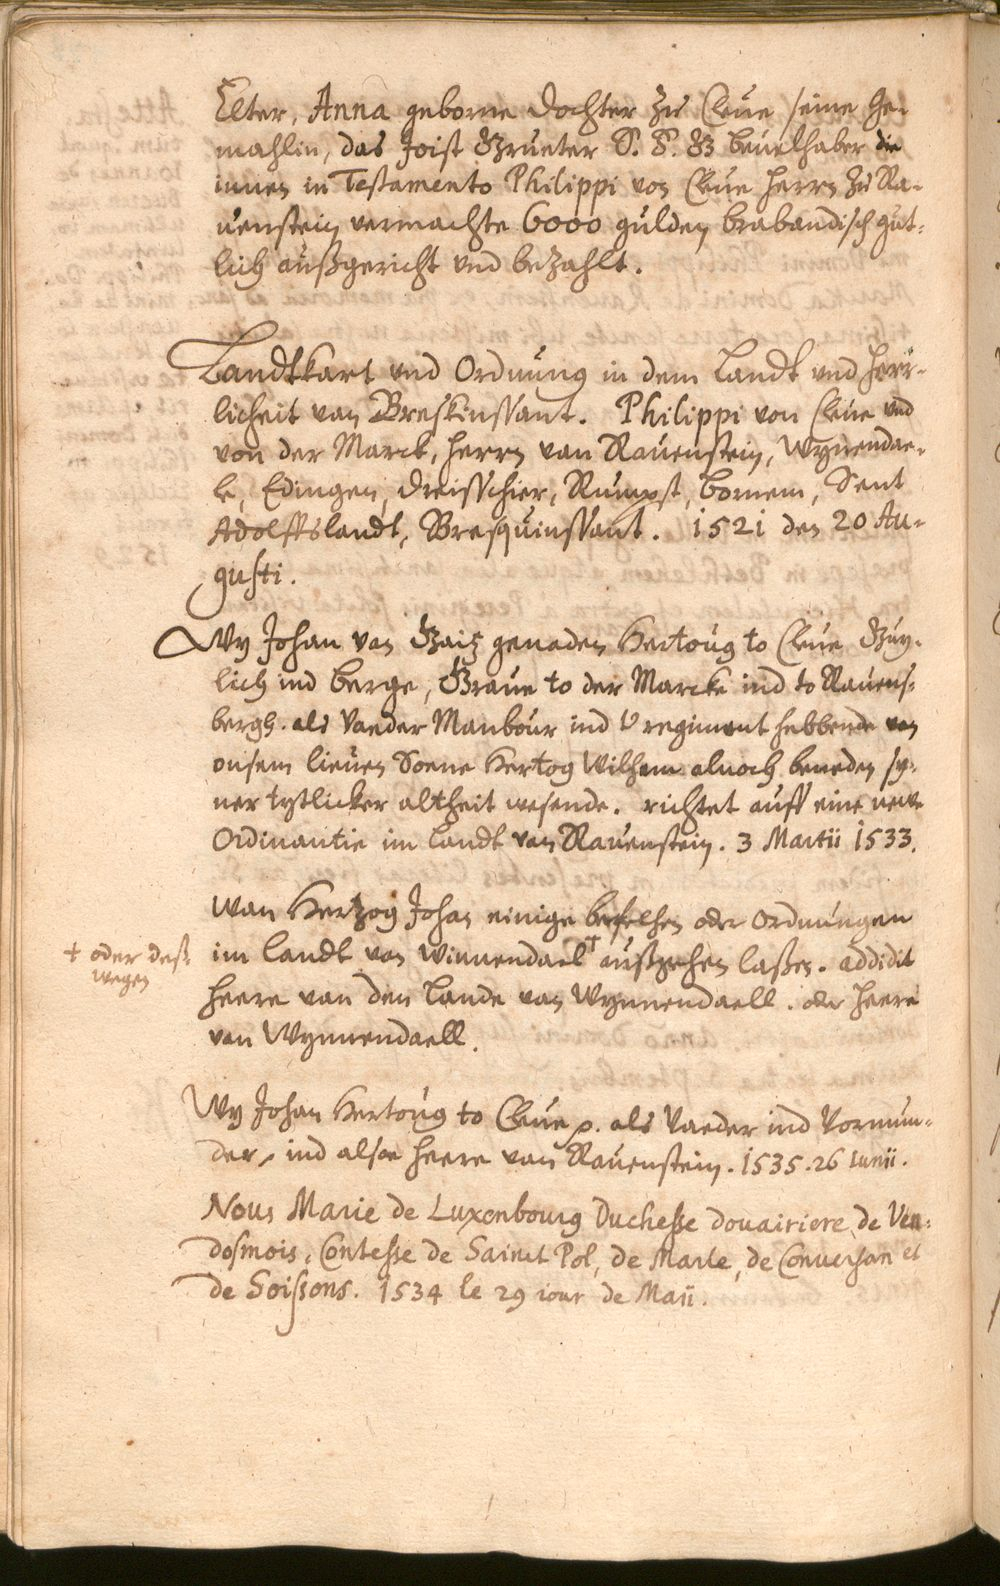 Elter, Anna geborne Dochter zu Cleue seine Ge-
mahlin, das Joist Gruuter S. F. G beuelhaber die
innen in Testamento Philippi von Cleue Herrn zu Ra-
uenstein vermachte 6000 gulden brabandisch gut-
lich außgericht vnd bezahlt.
Landtkart vnd Ordnung in dem Landt vnd Herr-
licheit van Breskinssant. Philippi von Cleue vnd
von der Marck, Herrn van Rauenstein, Wynendae-
le, Edingen, Dreisschier, Rumpst, Bornem, Sent
Adolffslandt, Bresquinssant. 1521 den 20 Au-
gusti.
Wy Johan van Gaitz genaden Hertoug to Cleue Guy-
lich ind Berge, Graue to der Marcke ind to Rauens-
bergh. als Vaeder Manbour ind regiment hebbende van
onsem lieuen Soene Hertog Wilhem alnoch beneden sy-
ner tytlicker altheit wesende. richtet auff eine newe
Ordinantie im Landt van Rauenstein. 3 Martii 1533.
Wan Hertzog Johan einige befelhen oder Ordnungen
im Landt van Winnendael † außgehen laßen. addidit
† oder deß-
wegen
Heere van den Lande van Wynnendaell. oder Heere
van Wynnendaell.
Wy Johan Hertoug to Cleue p. als Vaeder ind Vormun-
der, ind alsoe Heere van Rauenstein. 1535. 26 Iunii.
Nous Marie de Luxenbourg Duchesse douairiere de Ven-
dosmois, Contesse de Sainct Pol, de Marle, de Conversan et
de Soissons. 1534 le 29 iour de Maii.